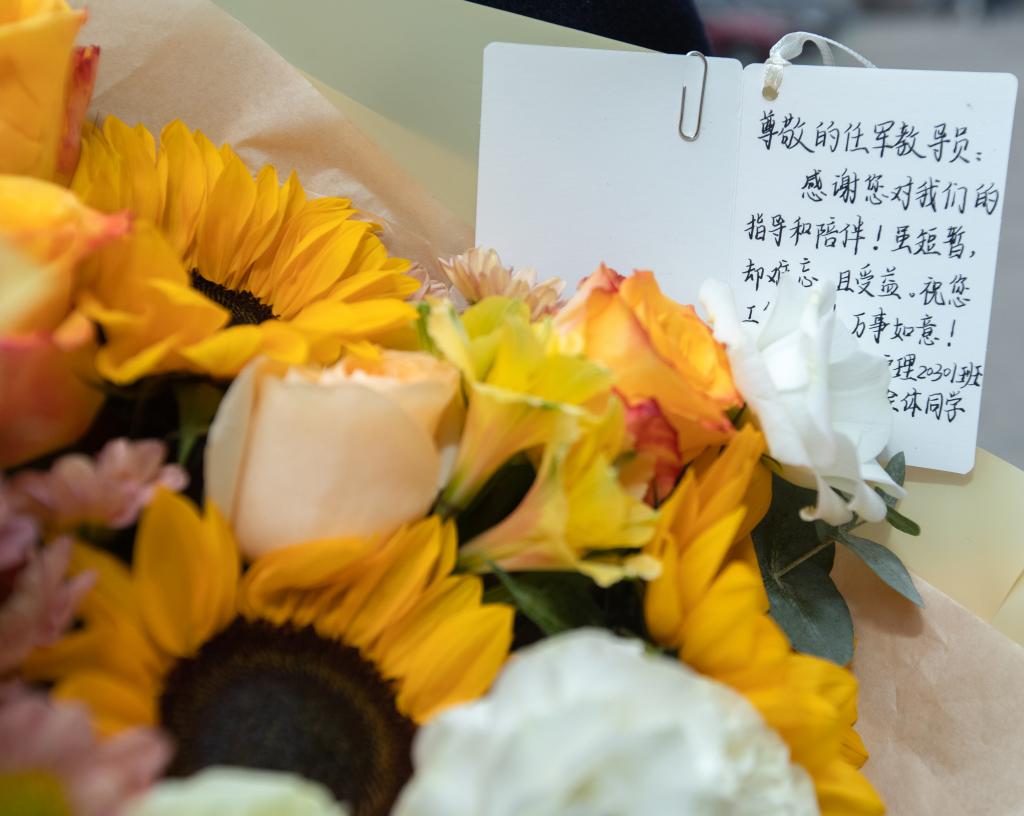 尊敬的任军教导员：
感谢您对我们的
指导和陪伴！虽短暂，
却难忘 且受益。祝您
工 万事如意！
理20301班
全体同学